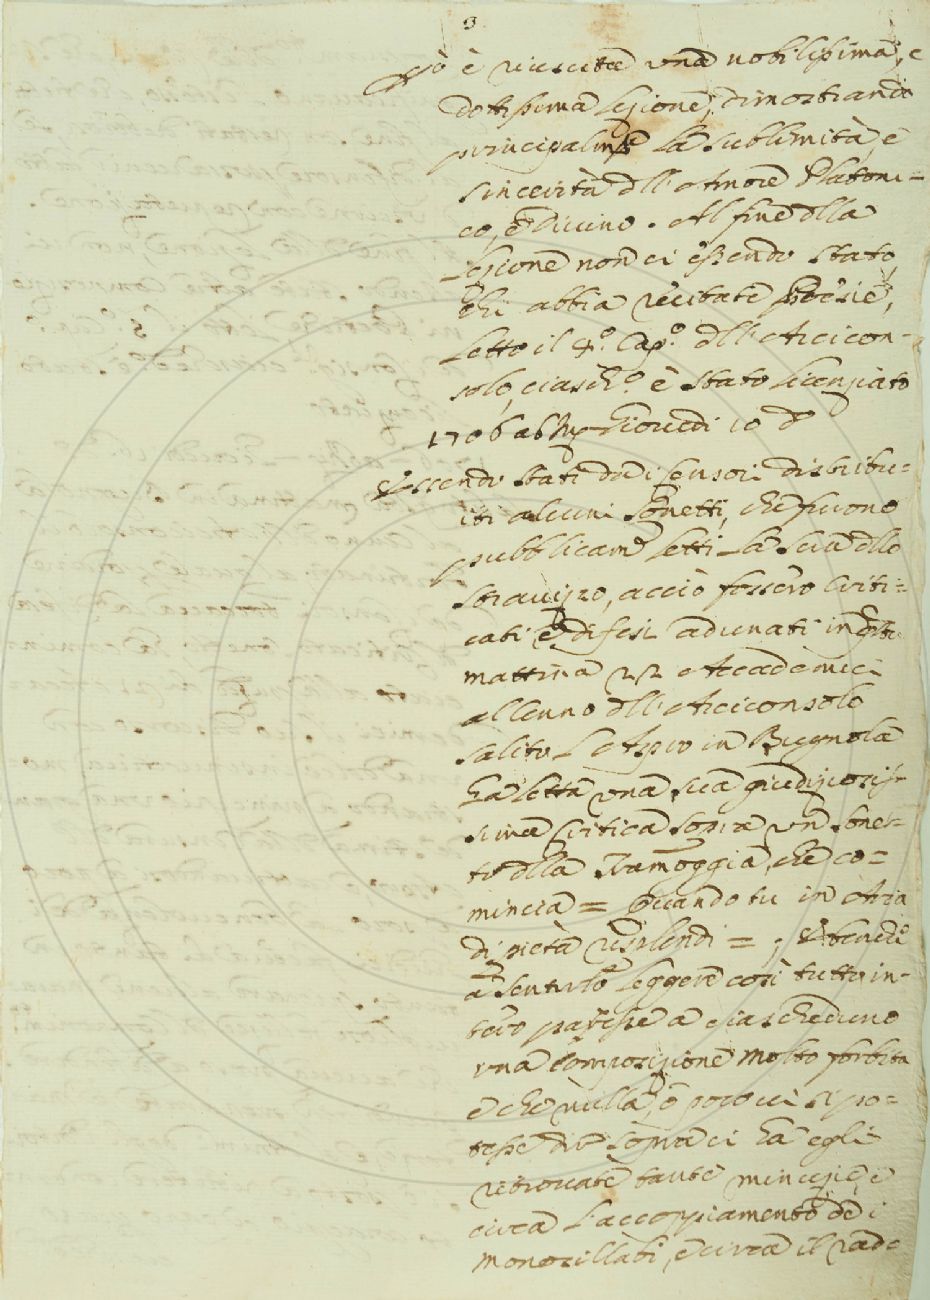 3
è riuscita una nobilissima, e
dottissima lezione, dimostrando
principalmte la sublimità, e
sincerità dll'Amore Platoni=
co, e Divino. Al fine dlla
Lezione non ci essendo stato
chi abbia recitate Poesie,
Letto il 4.º Cap.º dll'Arcicon=
solo, ciasch.º è stato licenziato
1706 ab Giovedi 10 d
Essendo stati da i Censori distribu=
iti alcuni Sonetti, che furono
pubblicam.e letti la sera dllo
Stravizzo, acciò fossero criti=
cati e difesi adunati in
mattina 22 Accademici
al cenno dll'Arciconsolo
salito in Bugnola
ha letta una sua giudiziosis=
sima Critica sopra un Sonet=
to dlla Tramoggia, che co=
mincia = Quando tu in Aria
di pietà risplendi = ; E benchè
a sentirlo leggere così tutto in=
tero paresse a ciascheduno
una Composizione molto forbita
e che nulla, o poco ci si po=
tesse dir sopra ci ha egli
ritrovate tante minuzie, e
circa l'accoppiamento de i
monosillabi, e circa il